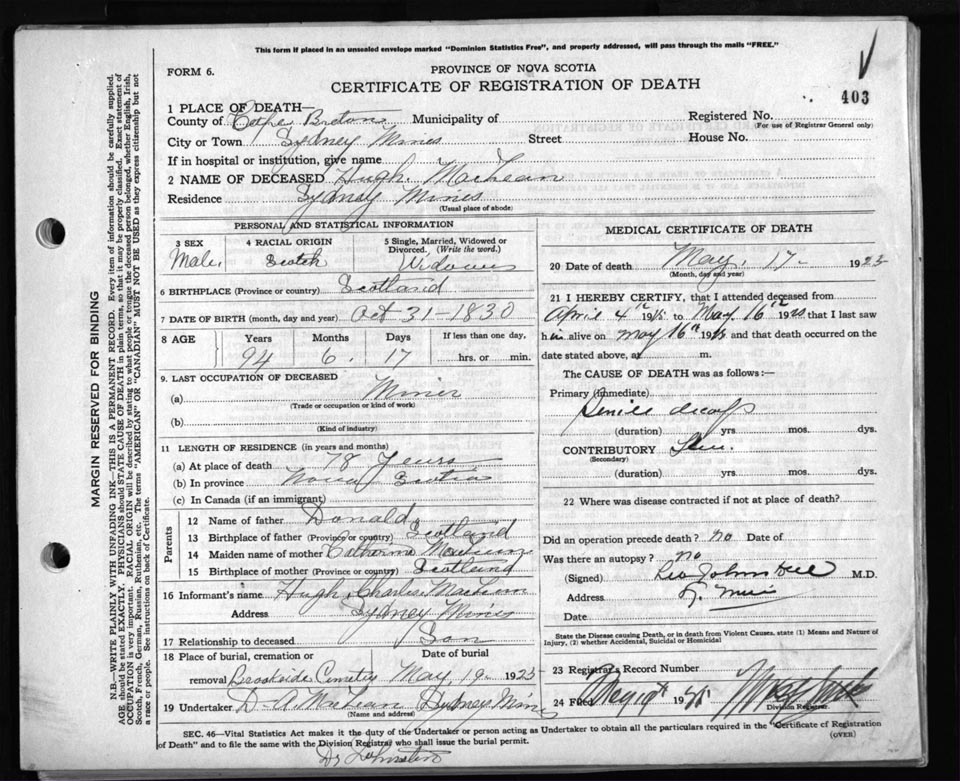 This form if placed in an unsealed envelope marked "Dominion Statistics Free", and properly addressed, will pass through the mails "FREE."
FORM 6.
PROVINCE OF NOVA SCOTIA
CERTIFICATE OF REGISTRATION OF DEATH
403
1 PLACE OF DEATH—
County of Cape Breton Municipality of Registered No.
(For use of Registrar General only)
City or Town Sydney Mines Street House No.
If in hospital or institution, give name
2 NAME OF DECEASED Hugh. MacLean
Residence Sydney Mines
(Usual place of abode)
PERSONAL AND STATISTICAL INFORMATION
3 SEX 4 RACIAL ORIGIN 5 Single, Married, Widowed or Divorced. (Write the word.)
Male. Scotch Widower
6 BIRTHPLACE (Province or country) Scotland
7 DATE OF BIRTH (month, day and year) Oct 31-1830
8 AGE Years Months Days If less than one day,
94 6. 17 hrs. or min.
9. LAST OCCUPATION OF DECEASED
(a) Miner
(Trade or occupation or kind of work)
(b)
(Kind of industry)
11 LENGTH OF RESIDENCE (in years and months)
(a) At place of death 78 Years
(b) In province Nova Scotia
(c) In Canada (if an immigrant)
Parents
12 Name of father Donald
13 Birthplace of father (Province or country) Scotland
14 Maiden name of mother Catherine
15 Birthplace of mother (Province or country) Scotland
16 Informant's name Hugh Charles MacLean
Address Sydney Mines
17 Relationship to deceased Son
18 Place of burial, cremation or Date of burial
removal Brookside Cemetry May 19 1925
19 Undertaker D. A MacLean Sydney Mines
(Name and address)
MEDICAL CERTIFICATE OF DEATH
20 Date of death May. 17- 1925
(Month, day and year)
21 I HEREBY CERTIFY, that I attended deceased from
April 4th to May 16th that I last saw
him alive on May 16th and that death occurred on the
date stated above, at m.
The CAUSE OF DEATH was as follows:—
Primary (immediate)
Senile decay
(duration) yrs. mos. dys.
CONTRIBUTORY
(Secondary)
(duration) yrs. mos. dys.
22 Where was disease contracted if not at place of death?
Did an operation precede death? no Date of
Was there an autopsy? no
(Signed) M.D.
Address
Date
State the Disease causing Death, or in death from Violent Causes, state (1) Means and Nature of
Injury, (2) whether Accidental, Suicidal or Homicidal
23 Registrar's Record Number
24 Filed
Division Registrar.
SEC. 46—Vital Statistics Act makes it the duty of the Undertaker or person acting as Undertaker to obtain all the particulars required in the "Certificate of Registration
of Death" and to file the same with the Division Registrar who shall issue the burial permit.
(OVER)
Dr Johnston
MARGIN RESERVED FOR BINDING
N.B.—WRITE PLAINLY WITH UNFADING INK—THIS IS A PERMANENT RECORD. Every item of information should be carefully supplied.
AGE should be stated EXACTLY. PHYSICIANS should STATE CAUSE OF DEATH in plain terms, so that it may be properly classified. Exact statement of
OCCUPATION is very important. RACIAL ORIGIN will be described by stating to what people or tongue the deceased person belonged, whether English, Irish,
Scotch, French, German, Russian, Ruthenian, etc. The terms "AMERICAN" OR "CANADIAN" MUST NOT BE USED as they express citizenship but not
a race or people. See instructions on back of Certificate.